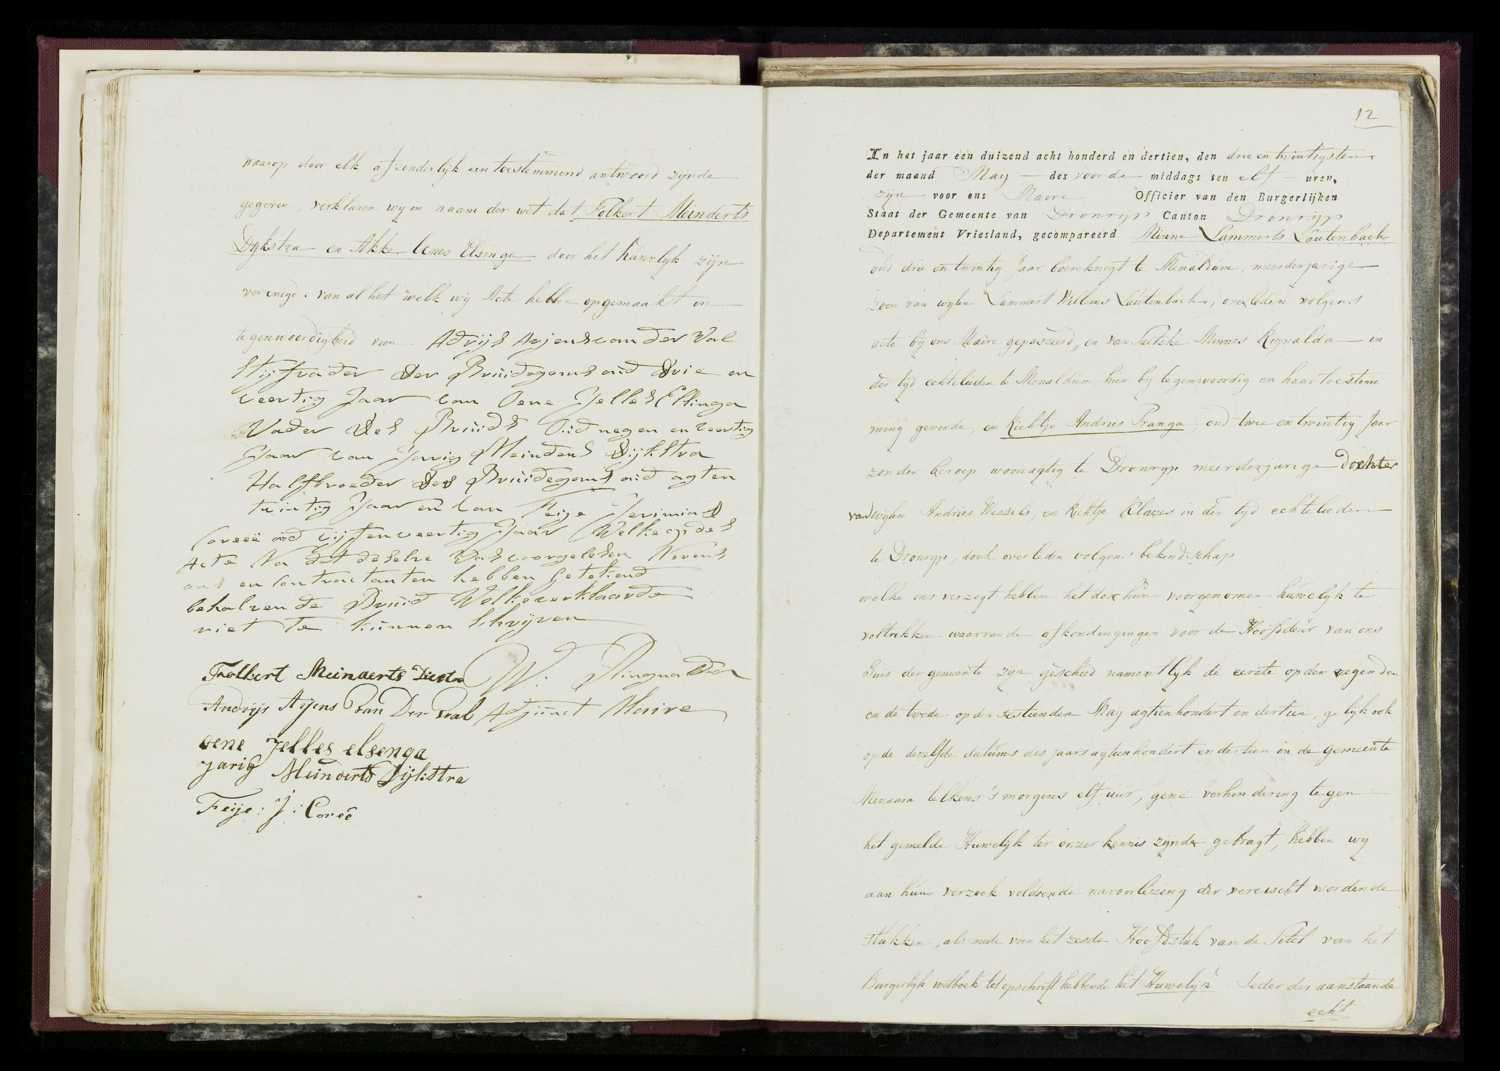 waarop door elk afzonderlijk een toestemmend antwoord zijnde
gegeven, verklaren wij in naam der wet dat Folkert Meinderts
Dijkstra en Akke Oenes Elsinga door het huwelijk zijn
verenigd. van al het welk wij Acte hebben opgemaakt in
tegenwoordigheid van Adrijs Arjens van der Wal
Stijfvader der Bruidegoms oud drie en
veertig Jaar van Oene Jelles Elsinga
Vader des Bruids Oud negen en veertig
Jaar van Jarig Meinderts Dijkstra
Halfbroeder des Bruidegoms oud agten
twintig Jaar en van Feije
Coreé oud vijf en veertig Jaar Welke op des
Acte Na dat deselve Was voorgelesen Nevens
ons en Contractanten hebben geteikend
behalven de Bruid Welke verklaarde
niet te kunnen Schrijven
Folkert Meinderts
Andrijs Arjens Van Der Wal Adjunct Maire
oene Jelles elsenga
Jarig Meinderts Dijkstra
Feije: J: Coreé
12
In het jaar een duizend acht honderd en dertien, den drie en twintigsten
der maand May des voor de middags ten elf uren,
zijn voor ons Maire Officier van den Burgerlijken
Staat der Gemeente van Dronrijp Canton Dronrijp
Departement Vriesland, gecompareerd Minne Lammerts Loutenbach
oud drie en twintig Jaar boereknegt te Menaldum, meerderjarige
Zoon van wijlen Lammert Willems Loutenbach, overleden volgens
acte bij ons Maire gepasseerd, en van Minnes Reynalda in
der tijd echtelieden te Menaldum hier bij tegenwoordig en haar toestem
ming gevende, en Riektje Andries Pranga, oud twee en twintig Jaar
zonder beroep woonagtig te Dronryp meerderjarige dochter
van wijlen Andries Wessels, en Riktje Klazes in der tijd echtelieden
te Dronryp, doch overleden volgens bekendschap
welke ons verzogt hebben het door hun voorgenomen huwelijk te
voltrekken waarvan de afkondigingen voor de Hoofddeur van ons
Huis der gemeente zijn geschied namentlijk de eerste op den negenden
en de twede op den sestienden May agtienhondert en dertien, gelijk ook
op de dezelfde datums des jaars agtienhondert en dertien in de gemeente
Menama telkens 's morgens elf uur, gene verhindering tegen
het gemelde Huwelijk ter onzer kennis zijnde gebragt, hebben wij
aan hun verzoek voldoende na voorlezing der vereischt wordende
Stukken, als mede van het zesde Hoofdstuk van de Titel van het
Burgerlijk wetboek tot opschrift hebbende het Huwelijk Ieder der aanstaande
echt